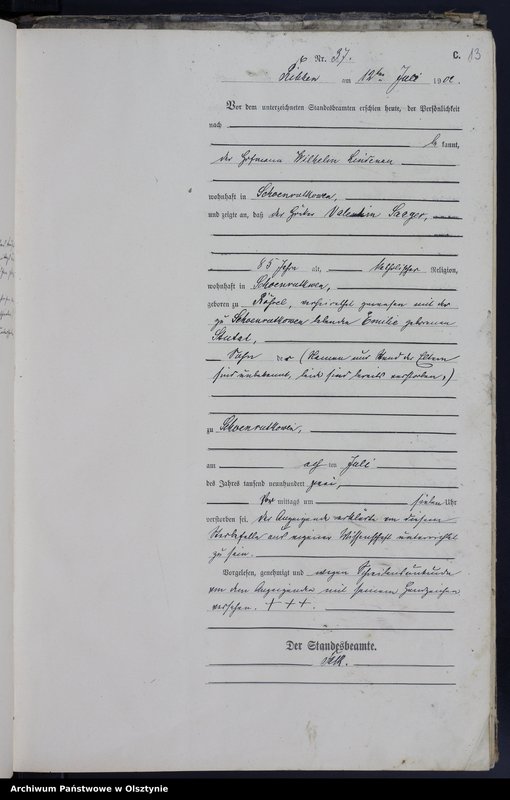 C. 13
Nr. 37.
Ribben am 12ten Juli 1902.
Vor dem unterzeichneten Standesbeamten erschien heute, der Persönlichkeit
nach
be kannt,
der Hofmann Wilhelm
wohnhaft in Schoenrutkowen,
und zeigte an, daß der Hirte Valentin Saager,
85 Jahre alt, katholischer Religion,
wohnhaft in Schoenrutkowen,
geboren zu Rößel, verheirathet gewesen mit der
zu Schoenrutkowen lebenden Emilie geborenen
Sohn der (Namen und Stand der Eltern
sind unbekannt, beide sind bereits verstorben,)
zu Schoenrutkowen,
am acht ten Juli
des Jahres tausend neunhundert zwei,
Vor mittags um sieben Uhr
verstorben sei. Der Anzeigende erklärte von diesem
Sterbefalle aus eigener Wissenschaft unterrichtet
zu sein.
Vorgelesen, genehmigt und wegen Schreibensunkunde
von dem Anzeigenden mit seinem Handzeichen
versehen. + + +.
Der Standesbeamte.
Archiwum Państwowe w Olsztynie